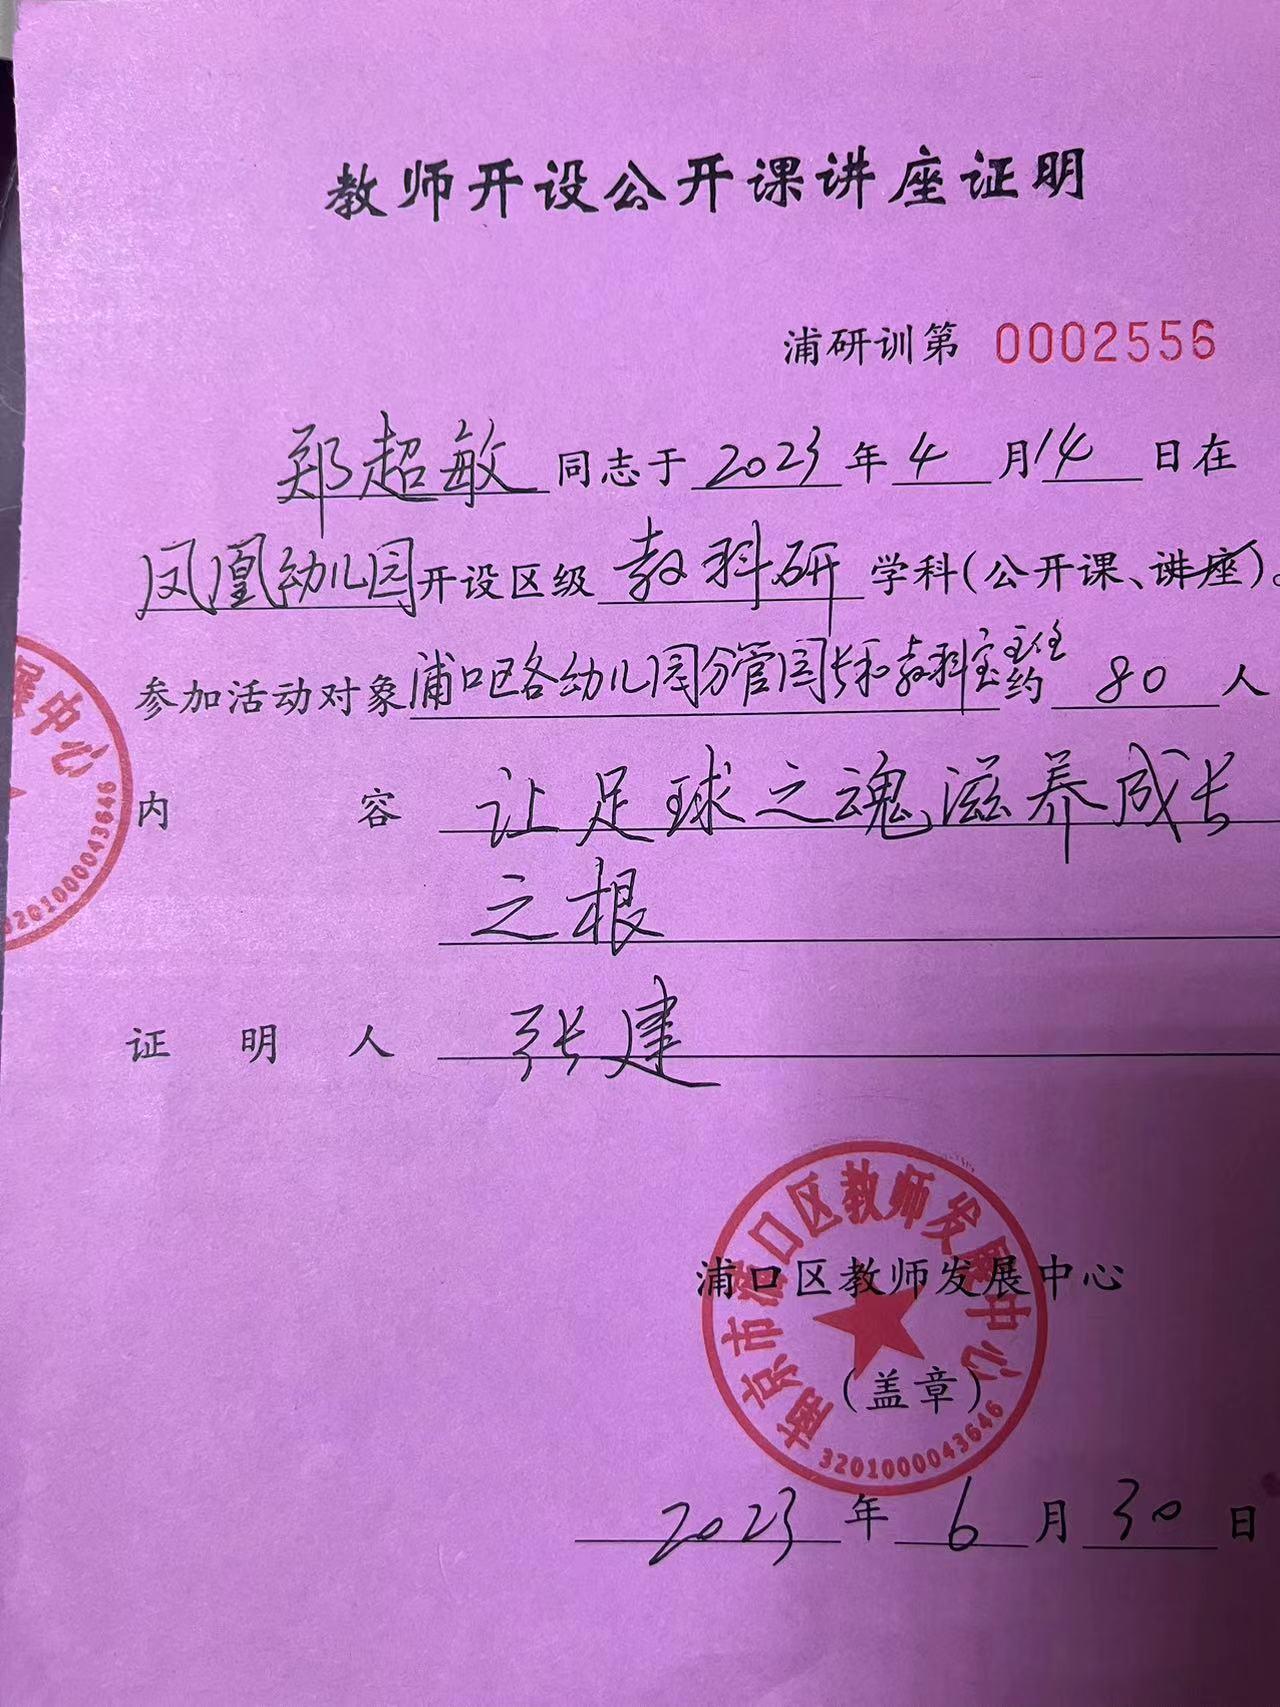 教师开设公开课讲座证明
浦研训第 0002556
郑超敏同志于2023年4月14日在
凤凰幼儿园开设区级教科研学科(公开课、讲座)。
参加活动对象浦口区各幼儿园分管园长和教科室主任约80人
内容 让足球之魂滋养成长
之根
证明人 张建
展中心
3201000043646
南京市浦口区教师发展中心
浦口区教师发展中心
(盖章)
3201000043646
2023年6月30日